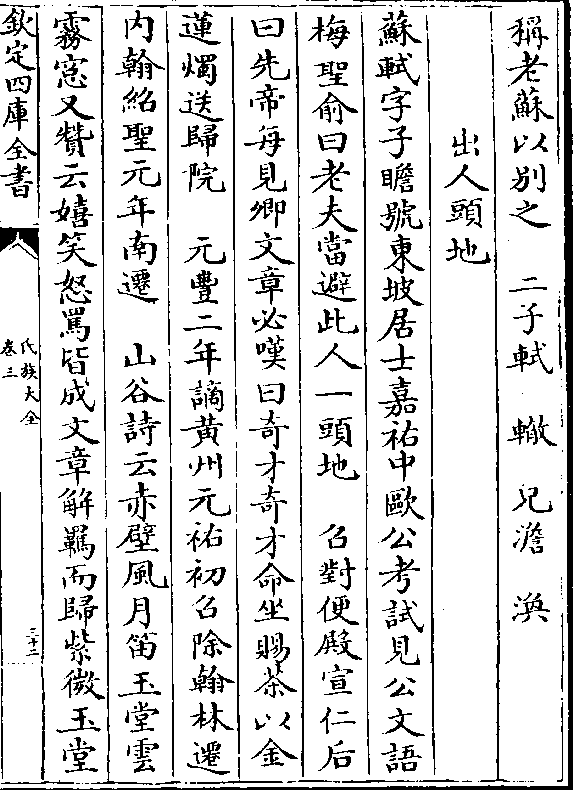 稱老蘇以别之　二子軾　轍　兄澹　渙
出人頭地
蘇軾字子瞻號東坡居士嘉祐中歐公考試見公文語
梅聖俞曰老夫當避此人一頭地　召對便殿宣仁后
曰先帝每見卿文章必嘆曰奇才奇才命坐賜茶以金
蓮燭送歸院　元豐二年謫黄州元祐初召除翰林遷
内翰紹聖元年南遷　山谷詩云赤壁風月笛玉堂雲
霧窓又贊云嬉笑怒罵皆成文章解羈而歸紫微玉堂
欽定四庫全書
氏族大全
卷三
三十二